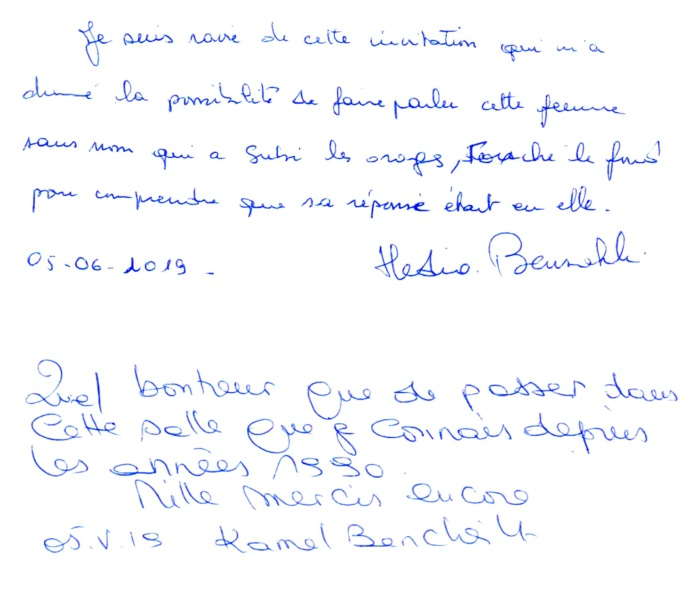 Je suis ravie de cette invitation qui m'a
donné la possibilité de faire parler cette femme
sans nom qui a subi les orages, touché le fond
pour comprendre que sa réponse était en elle.
05-06-2019 -
Quel bonheur que de passer dans
Cette salle que je connais depuis
les années 1990
Mille mercis encore
05.V.19 Kamel